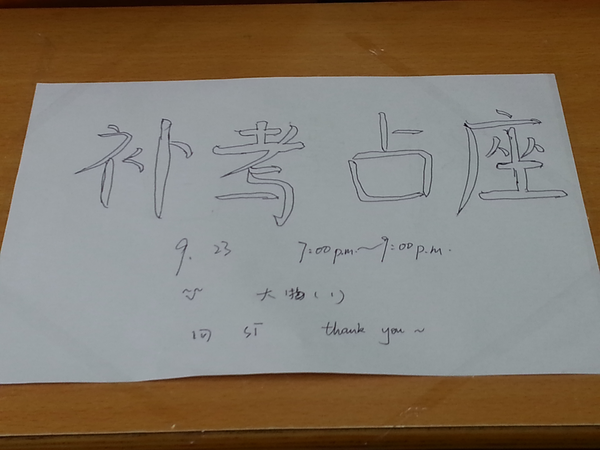 补考占座
9.23 7:00p.m.~9:00p.m.
大物(1)
thank you~